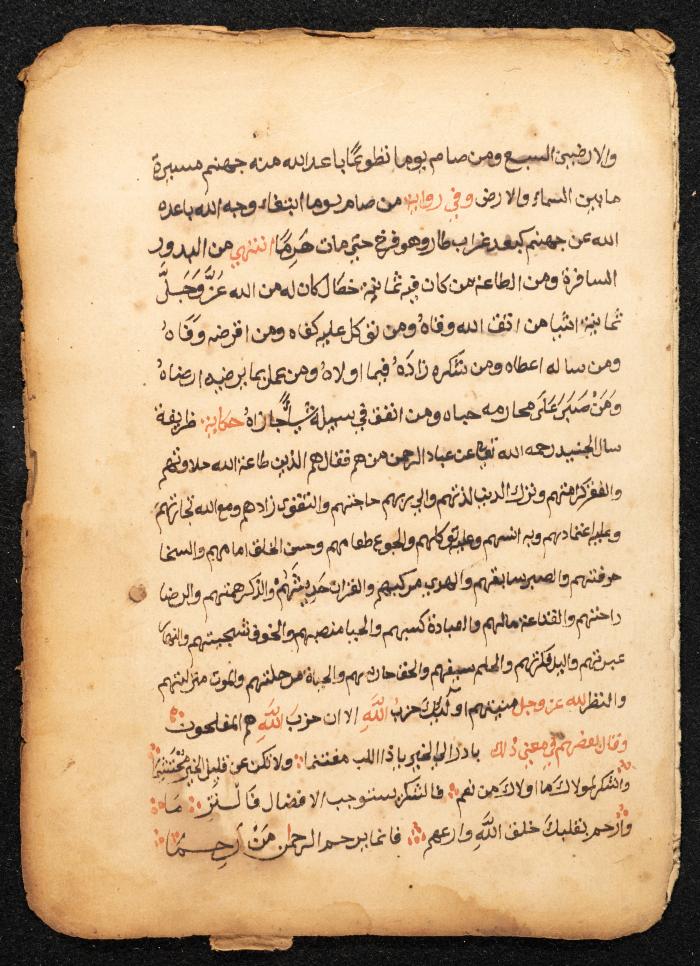 والارضين السبع ومن صام يوما تطوعًا باعد الله منه جهنم مسيرة
ما بين السماء والارض وفي رواية من صام يوما ابتغاء وجه الله باعده
الله عن جهنم كبعد غراب طار وهو فرخ حتي مات هَرِمًا انتهي من البدور
السافرة ومن الطاعة من كان فيه ثمانية خصال كان له من الله عَزَّ وَجَلَّ
ثمانية اشيا من اتق الله وقاهُ ومن توكل عليه كفاه ومن اقرضه وَفَاهُ
ومن ساله اعطاه ومن شكره زادَهُ فيما اولاهُ ومن عمل بما يرضيه ارضاهُ
وَمَنْ صَبَرَ عَلَى محارمه حباه ومن انفق في سبيله جازاهُ حكاية ظريفة
سال الجنيد رحمه الله عن عباد الرحمن من هم فقال هم الذين طاعة الله حلاوتهم
والفقر كرامتهم وترك الدنيا لذتهم والي ربهم حاجتهم والتقوي زادهم ومع الله تجارتهم
وعليه اعتمادهم وبه انسهم وعليه توكلهم والجوع طعامهم وحسن الخلق امامهم والسخا
حرفتهم والصبر سابقهم والهدي مركبهم والقران حَدِيثَهُمْ والذكر همتهم والرضا
راحتهم والقناعة مالهم والعبادة كسبهم والحيا منصبهم والخوف شجيتهم والنهار
عبرتهم والليل فكرتهم والحلم سيفهم والحق حارسهم والحياة مرحلتهم والموت منزلتهم
والنظر لله عز وجل منيتهم اولَئِكَ حزبُ اللَّهِ الا ان حزبَ اللَّهِ هم المفلحون
وقال بعضهم في معني ذلك بادر الي الخير يا ذا اللب مغتنما ولا تكن عن قليل الخير مُحْتَشِمَا
والشكر لمولاكَ ما اولاكَ من نعم فالشكر يستوجب الافضال
وَارْحم بقلبكَ خلق اللَّهِ وارعهم فانما يرحم الرحمن مَنْ رحِمَا